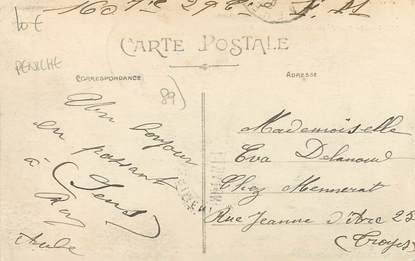 10€
PENICHE
89
CARTE POSTALE
CORRESPONDANCE
ADRESSE
Un bonjour
en passant
à
(Sens)
Aube
Mademoiselle
Eva Delanoue
Chez Mennerat
Rue Jeanne d'Arc 25
(Troyes)